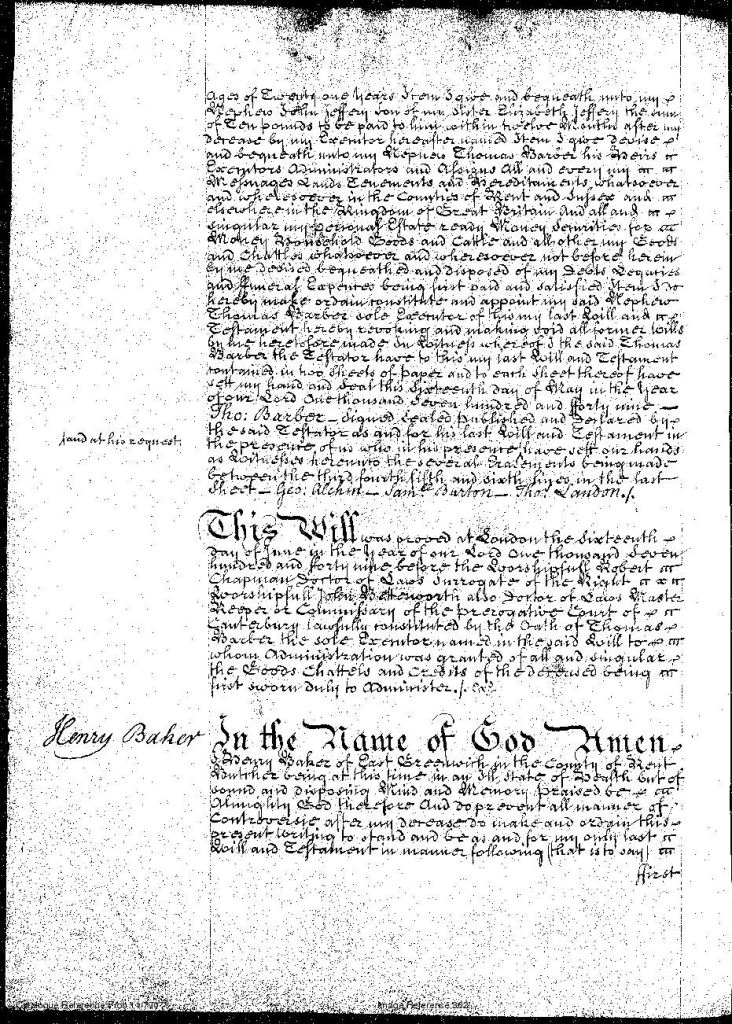 Ages of Twenty one years Item I give and bequeath unto my
Nephew John Jeffery Son of my Sister Elizabeth Jeffery the sum
of Ten pounds to be paid to him within twelve Months after my
decease by my Executor hereafter named Item I give devise
and bequeath unto my Nephew Thomas Barber his Heirs
Executors Administrators and Assigns All and every my
Messuages Lands Tenements and Hereditaments whatsoever
and wheresoever in the Counties of Kent and Sussex and
elsewhere in the Kingdom of Great Britain And all and
singular my personal Estate ready Money Securities for
Money Household Goods and Cattle and all other my Goods
and Chattles whatsoever and wheresoever not before herein
by me devised bequeathed and disposed of my Debts Legacies
and ffuneral Expences being first paid and satisfied Item I Do
hereby make ordain constitute and appoint my said Nephew
Thomas Barber sole Executor of this my last Will and
Testament hereby revoking and making void all former Wills
by me heretofore made In Witness whereof I the said Thomas
Barber the Testator have to this my last Will and Testament
contained in two sheets of paper and to each sheet thereof have
sett my hand and Seal this Sixteenth day of May in the Year
of our Lord One thousand Seven hundred and fforty nine
Tho: Barber – Signed Sealed Published and Declared by
the said Testator as and for his last Will and Testament in
/and at his request/
the presence of us who in his presence have sett our hands
as Witnesses hereunto the several Erasements being made
between the third fourth fifth and sixth lines in the last
Sheet – Geo: Alchin – Sam: Burton – Tho: Landon /.
This Will was proved at London the Sixteenth
day of June in the Year of our Lord One thousand Seven
hundred and fforty nine before the Worshipfull Robert
Chapman Doctor of Laws Surrogate of the Right
Worshipfull John Bettesworth also Doctor of Laws Master
Keeper or Commissary of the Prerogative Court of
Canterbury lawfully constituted by the Oath of Thomas
Barber the sole Executor named in the said Will to
whom Administration was granted of all and singular
the Goods Chattels and Credits of the deceased being
first sworn duly to Administer /.
Henry Baker
In the Name of God Amen
I Henry Baker of East Greenwich in the County of Kent
Butcher being at this time in an Ill State of Health but of
sound and disposing Mind and Memory Praised be
Almighty God therefore And do prevent all manner of
Controversie after my decease do make and ordain this
present writing to stand and be as and for my only last
Will and Testament in manner following (that is to say)
ffirst
Catalogue Reference:Prob 11/770
Image Reference:362